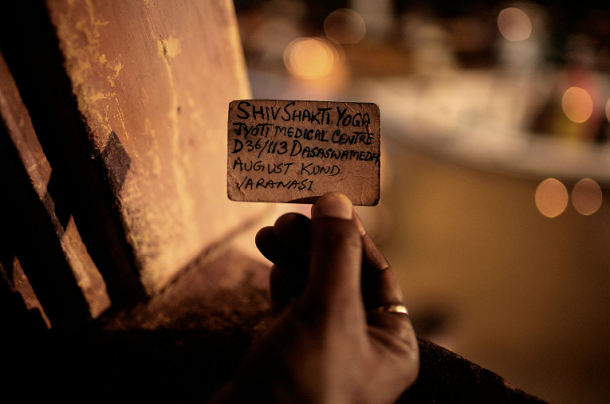 SHIVSHAKTI YOGA
JYOTI MEDICAL CENTRE
D 36/113 DASASWAMEDH
AUGUST KOND
VARANASI